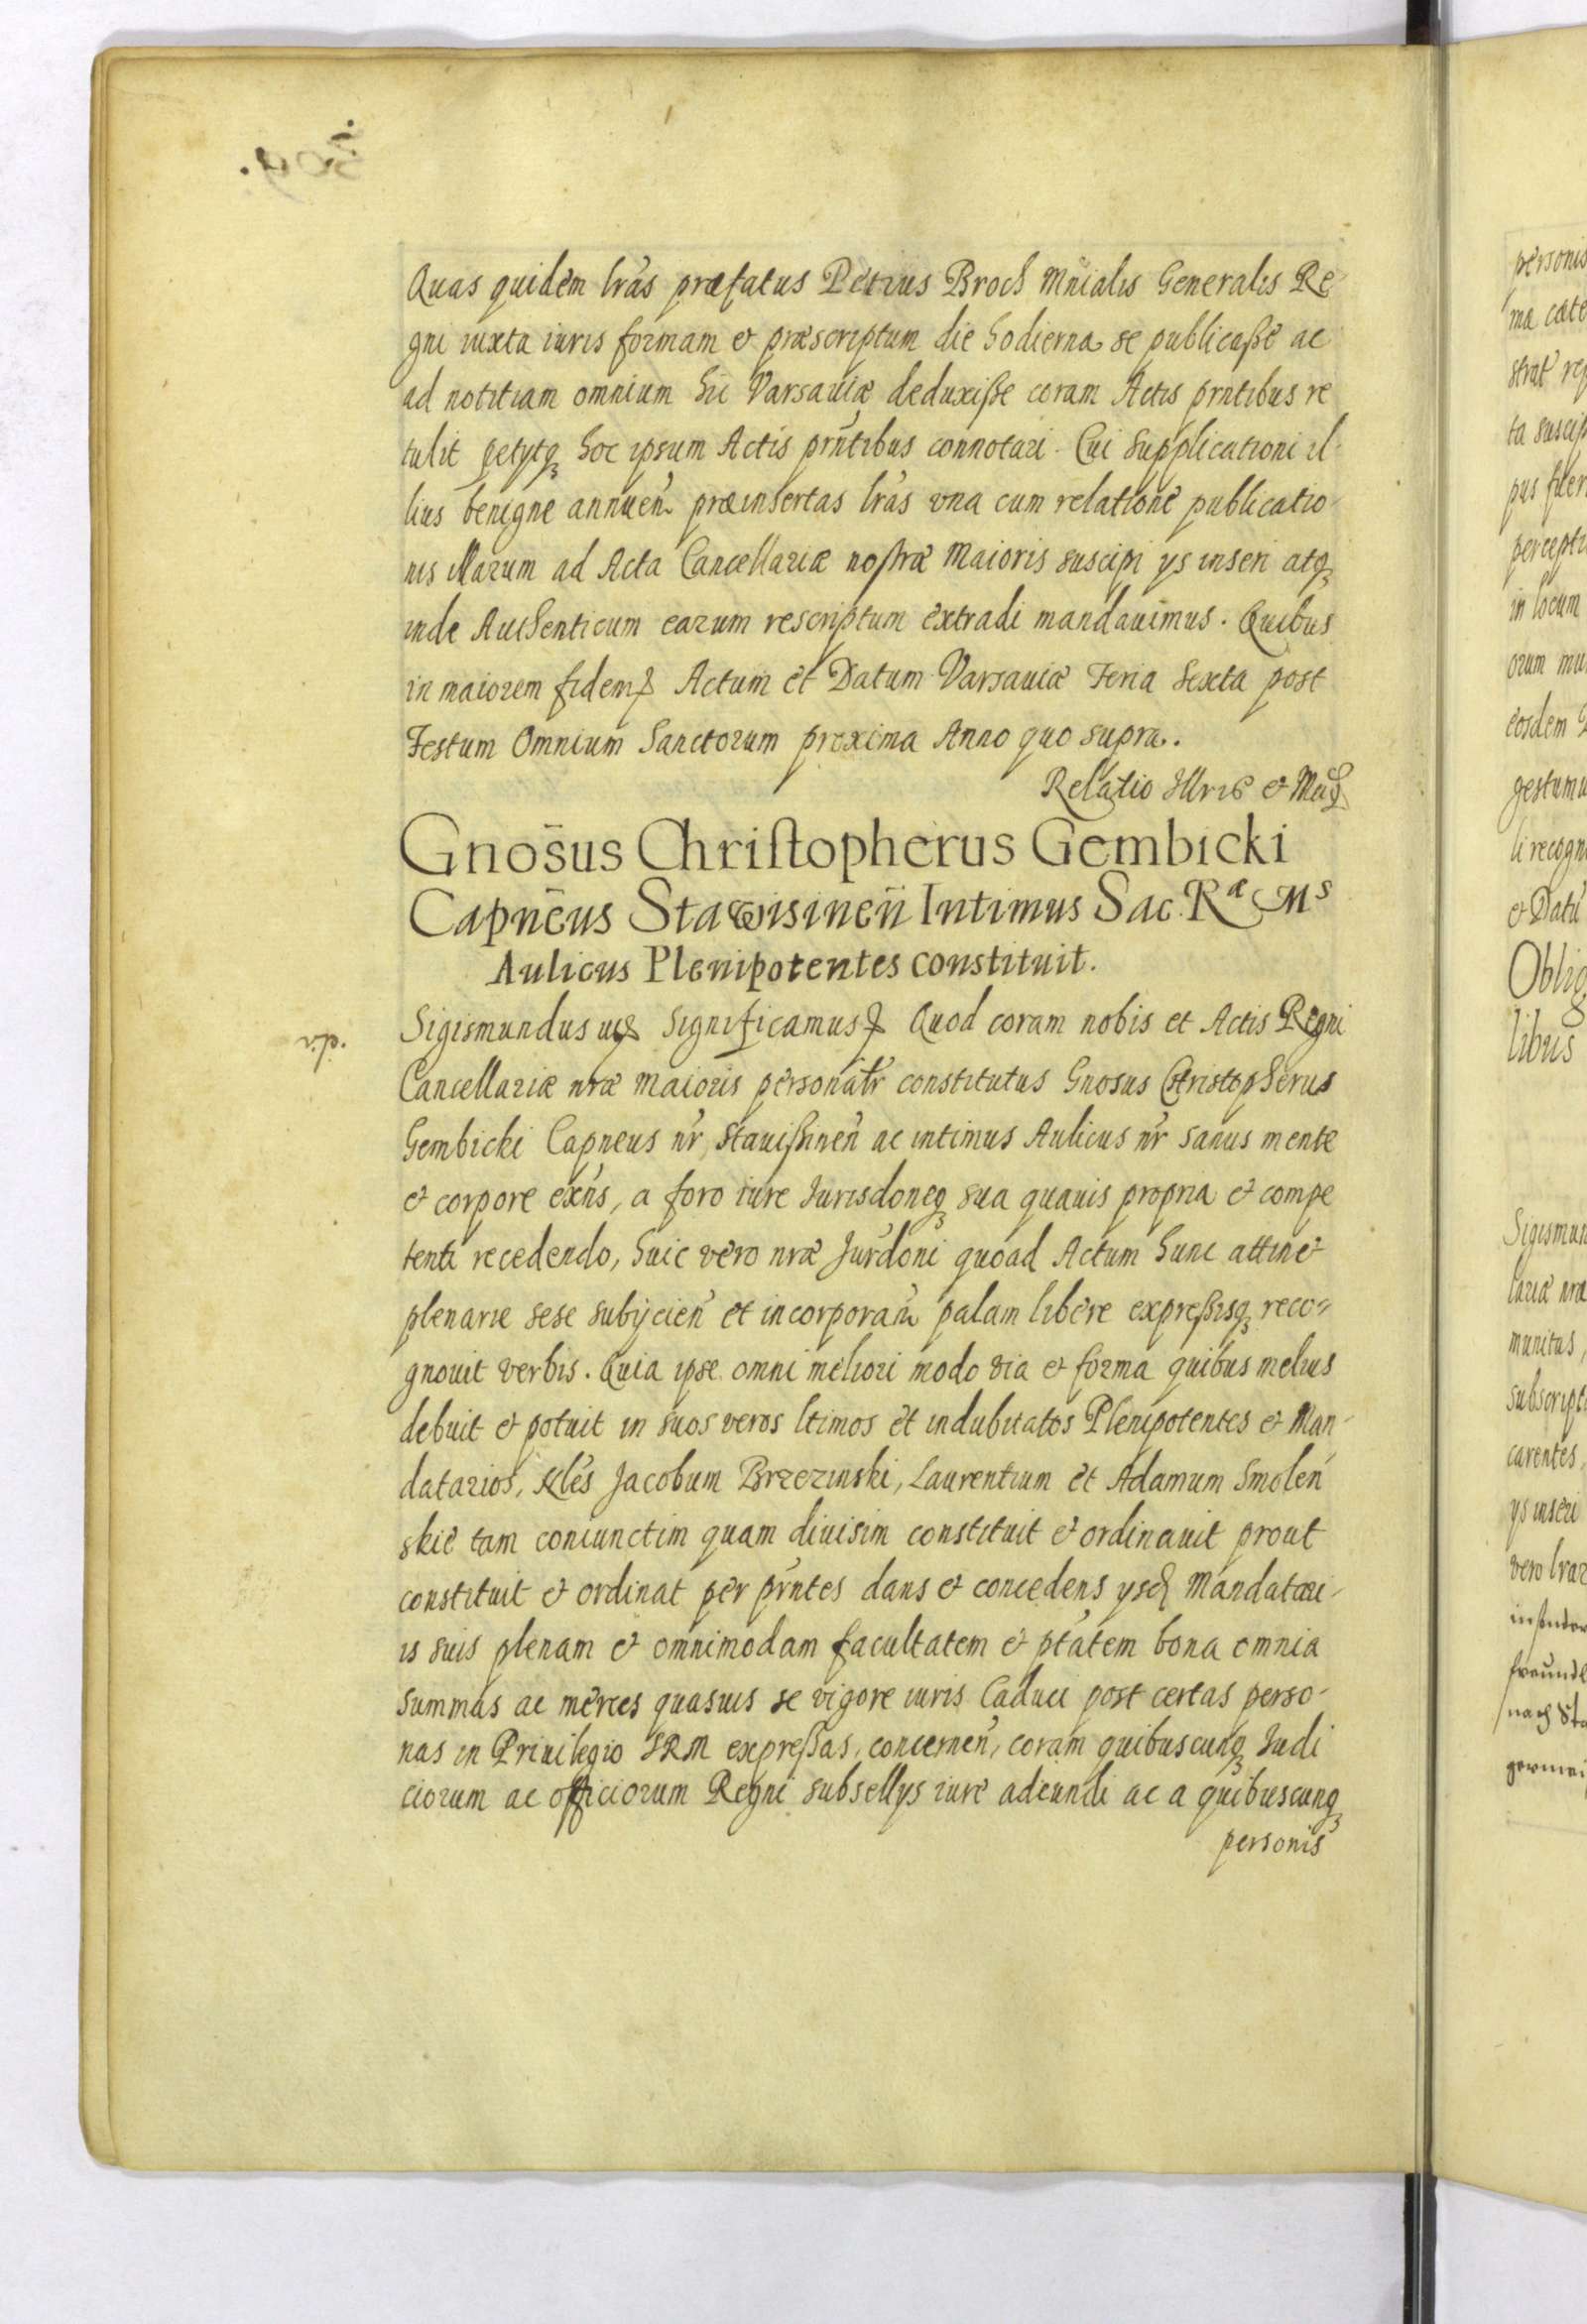 Quas quidem lrãs præfatus Petrus Broch Mñialis Generalis Re-
gni iuxta iuris formam et præscriptum die hodierna se publicaße ac
ad notitiam omnium hic Varsauiæ deduxiße coram Actis prñtibus re
tulit petytq₃ hoc ipsum Actis prñtibus connotari. Cui supplicationi il-
lius benigne annuen̄ præinsertas lrãs vna cum relatione publicatio-
nis illarum ad Acta Cancellariæ nostræ Maioris suscipi ys inseri atq₃
inde Authenticum earum rescriptum extradi mandauimus. Quibus
in maiorem fidem Actum et Datum Varsauiæ Feria Sexta post
Festum Omnium Sanctorum proxima Anno quo supra.
Relatio Illris et Mag
Gnõsus Christopherus Gembicki
Capnẽus Stawisineñ Intimus Sac. Rᵃ Mˢ
Aulicus Plenipotentes constituit.
Sigismundus Significamus Quod coram nobis et Actis Regni
Cancellariæ nræ Maioris personalr constitutus Gnosus Christopherus
Gembicki Capneus nr̃ Stauißinen̄ ac intimus Aulicus nr̃ sanus mente
et corpore exñs, a foro iure Jurisdoneq₃ sua quauis propria et compe
tenti recedendo, huic vero nræ Jurdoni quoad Actum hunc attinet
plenarie sese subijcien̄ et incorporan̄ palam libere expreßisq₃ reco=
gnouit verbis. Quia ipse omni meliori modo via et forma quibus melius
debuit et potuit in suos veros ltimos et indubitatos Plenipotentes et Man-
datarios, Nles Jacobum Brzezinski, Laurentium et Adamum Smolen̄
skie tam coniunctim quam diuisim constituit et ordinauit prout
constituit et ordinat per prñtes dans et concedens ysd Mandatari-
is suis plenam et omnimodam facultatem et ptãtem bona omnia
Summas ac merces quasuis se vigore iuris Caduci post certas perso-
nas in Priuilegio SRM expreßas, concernen̄, coram quibuscunq₃ Judi
ciorum ac officiorum Regni subsellys iure adeundi ac a quibuscunq₃
personis